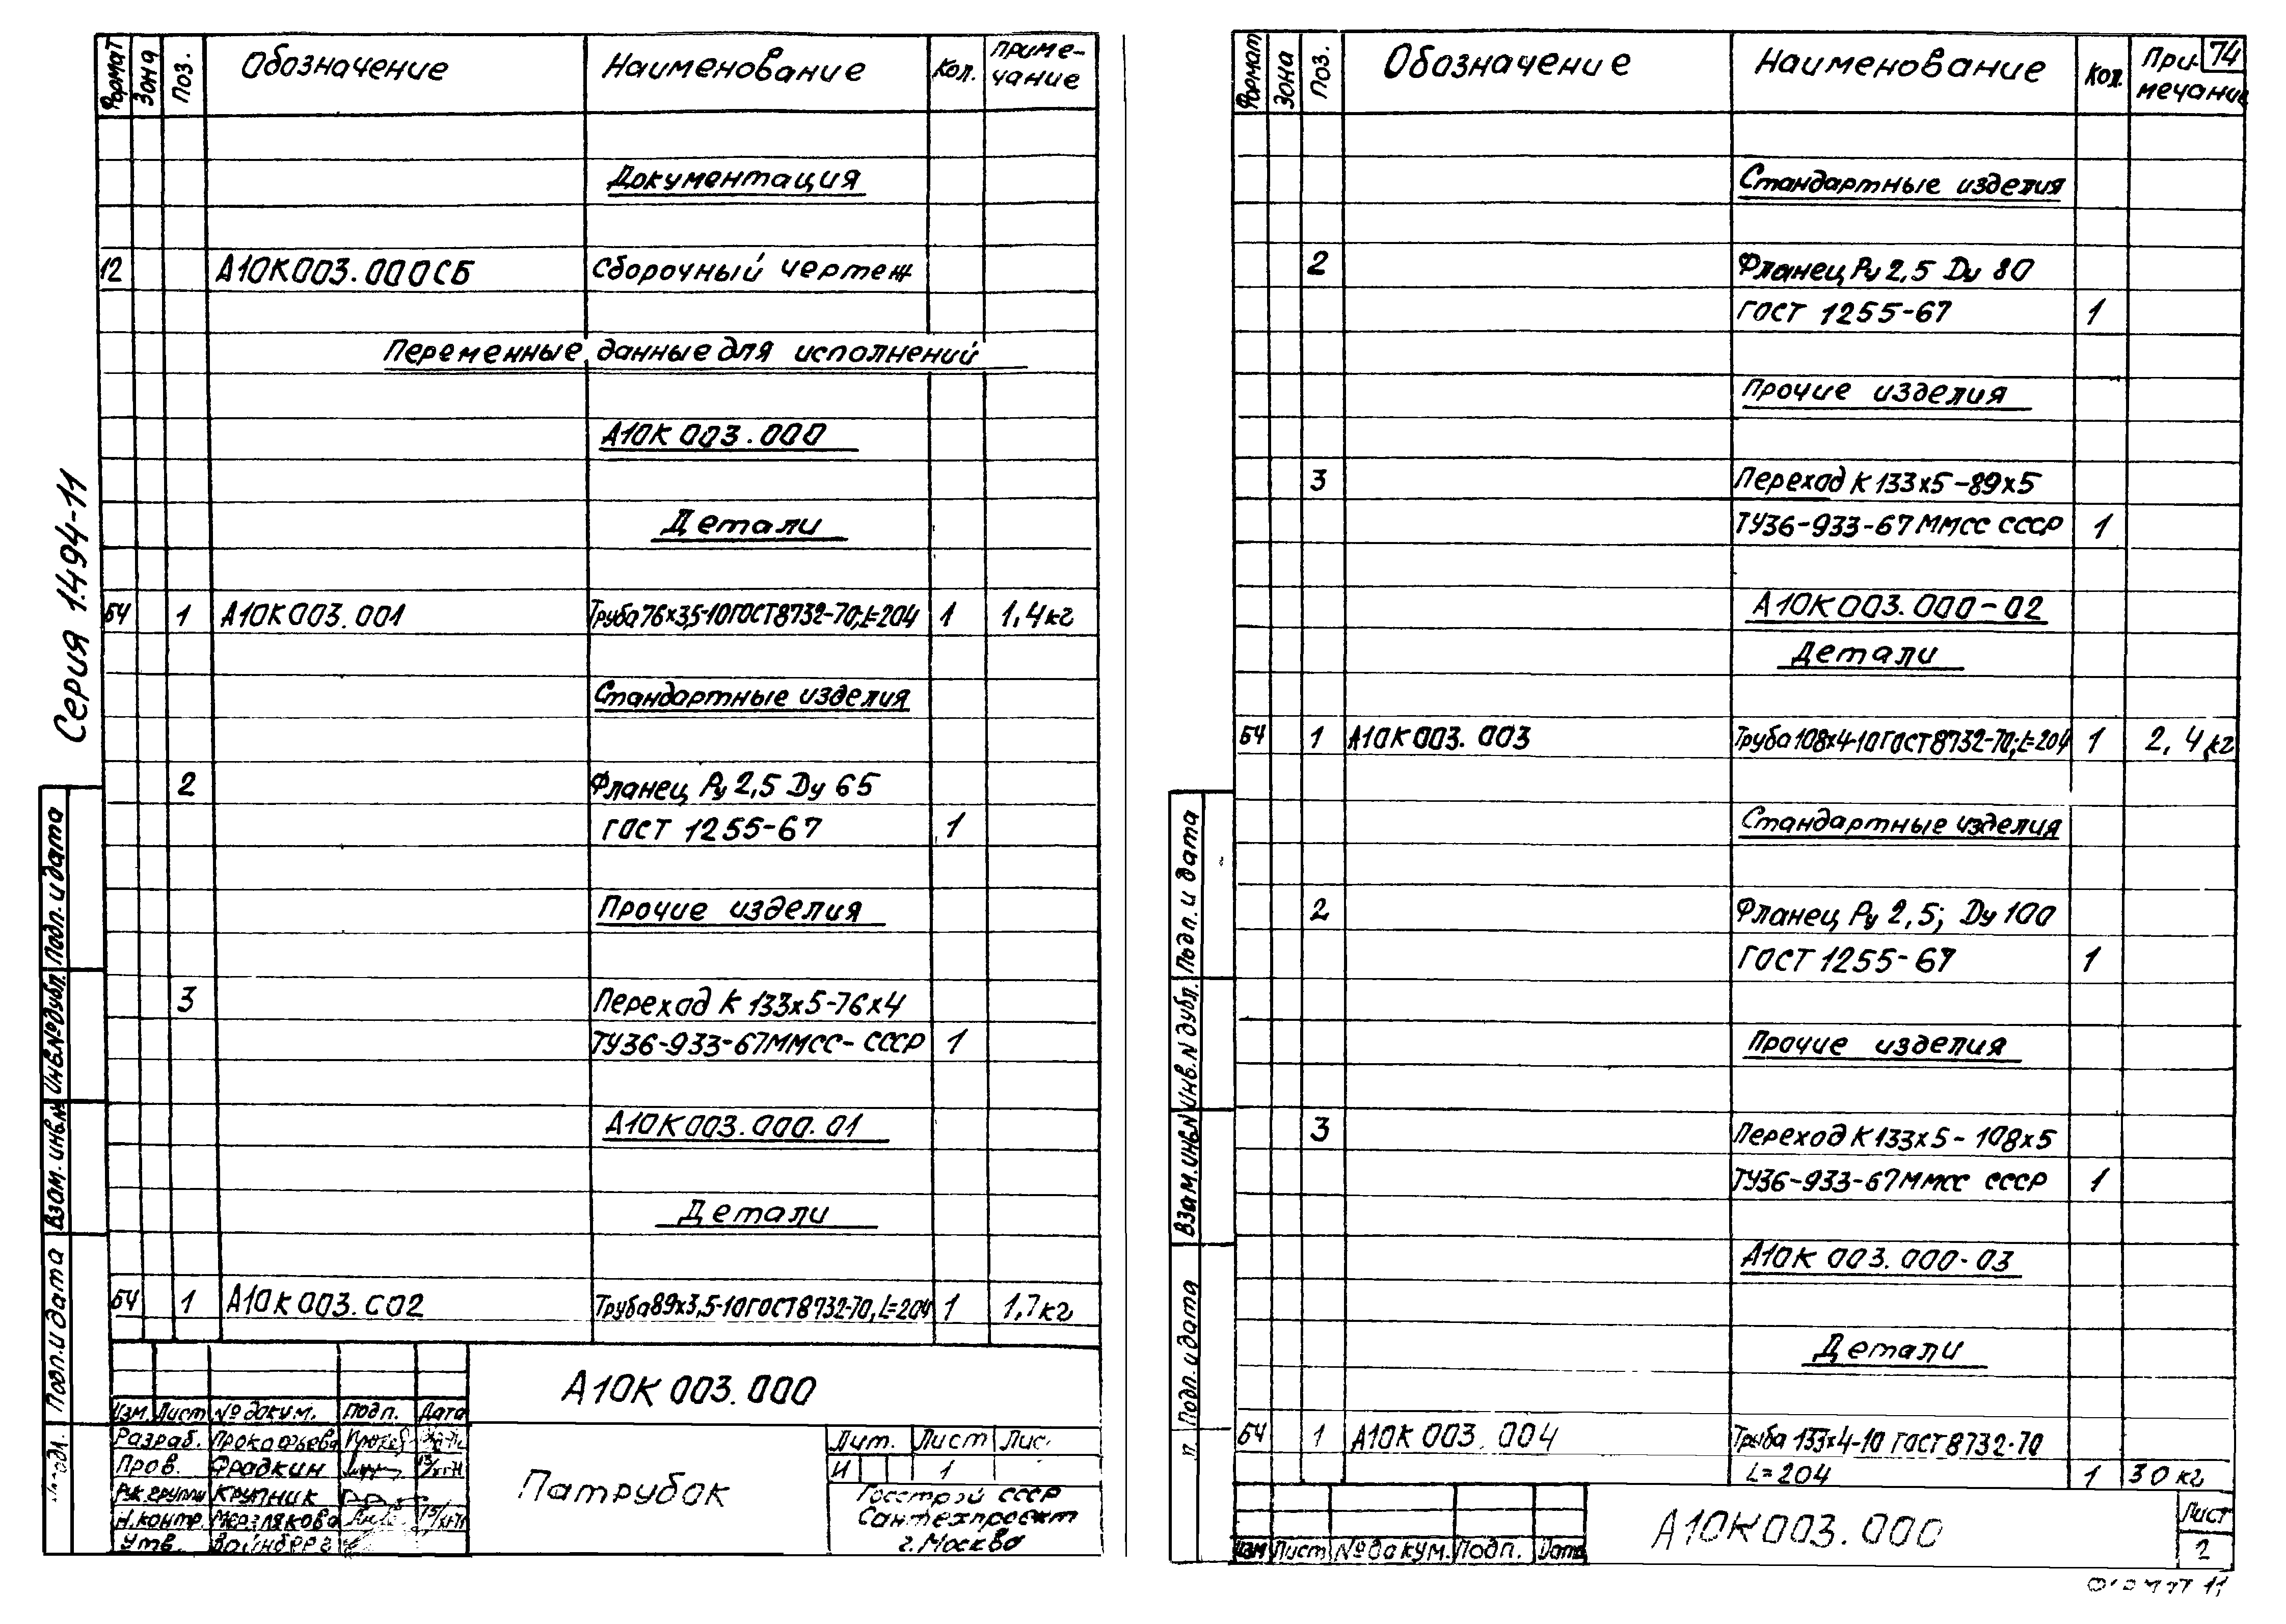 Серия 1.494-11
Формат Зона Поз. Обозначение Наименование Кол. Приме-
чание
Документация
12 А10К003.000СБ Сборочный чертеж
Переменные данные для исполнений
А10К 003.000
Детали
БЧ 1 А10К003.001 Труба 76х3,5-10 ГОСТ 8732-70; L=204 1 1,4 кг
Стандартные изделия
2 Фланец Ру 2,5 Ду 65
ГОСТ 1255-67 1
Прочие изделия
3 Переход К 133х5-76х4
ТУ36-933-67 ММСС-СССР 1
А10К003.000.01
Детали
БЧ 1 А10К003.С02 Труба 89х3,5-10 ГОСТ 8732-70, L=204 1 1,7 кг
Подп. и дата
Инв.№ дубл.
Взам. инв.№
Подп. и дата
А10К 003.000
Изм. Лист № докум. Подп. Дата
Разраб. Прокофьева
Пров. Фрадкин
Рук. группы Крупник
Н.контр. Мерзлякова
Утв. Вайнберг
Патрубок
Лит. Лист Лис
И 1
Госстрой СССР
Сантехпроект
г. Москва
74
Формат Зона Поз. Обозначение Наименование Кол. При-
мечание
Стандартные изделия
2 Фланец Ру 2,5 Ду 80
ГОСТ 1255-67 1
Прочие изделия
3 Переход К 133х5-89х5
ТУ36-933-67 ММСС СССР 1
А10К003.000-02
Детали
БЧ 1 А10К003.003 Труба 108х4-10 ГОСТ 8732-70; L=204 1 2,4 кг
Стандартные изделия
2 Фланец Ру 2,5; Ду 100
ГОСТ 1255-67 1
Прочие изделия
3 Переход К 133х5-108х5
ТУ36-933-67 ММСС СССР 1
А10К 003.000-03
Детали
БЧ 1 А10К 003.004 Труба 133х4-10 ГОСТ 8732-70
L=204 1 30 кг
Подп. и дата
Инв.N дубл.
Взам. инв.N
Подп. и дата
Изм Лист № докум. Подп. Дата
А10К003.000
Лист
2